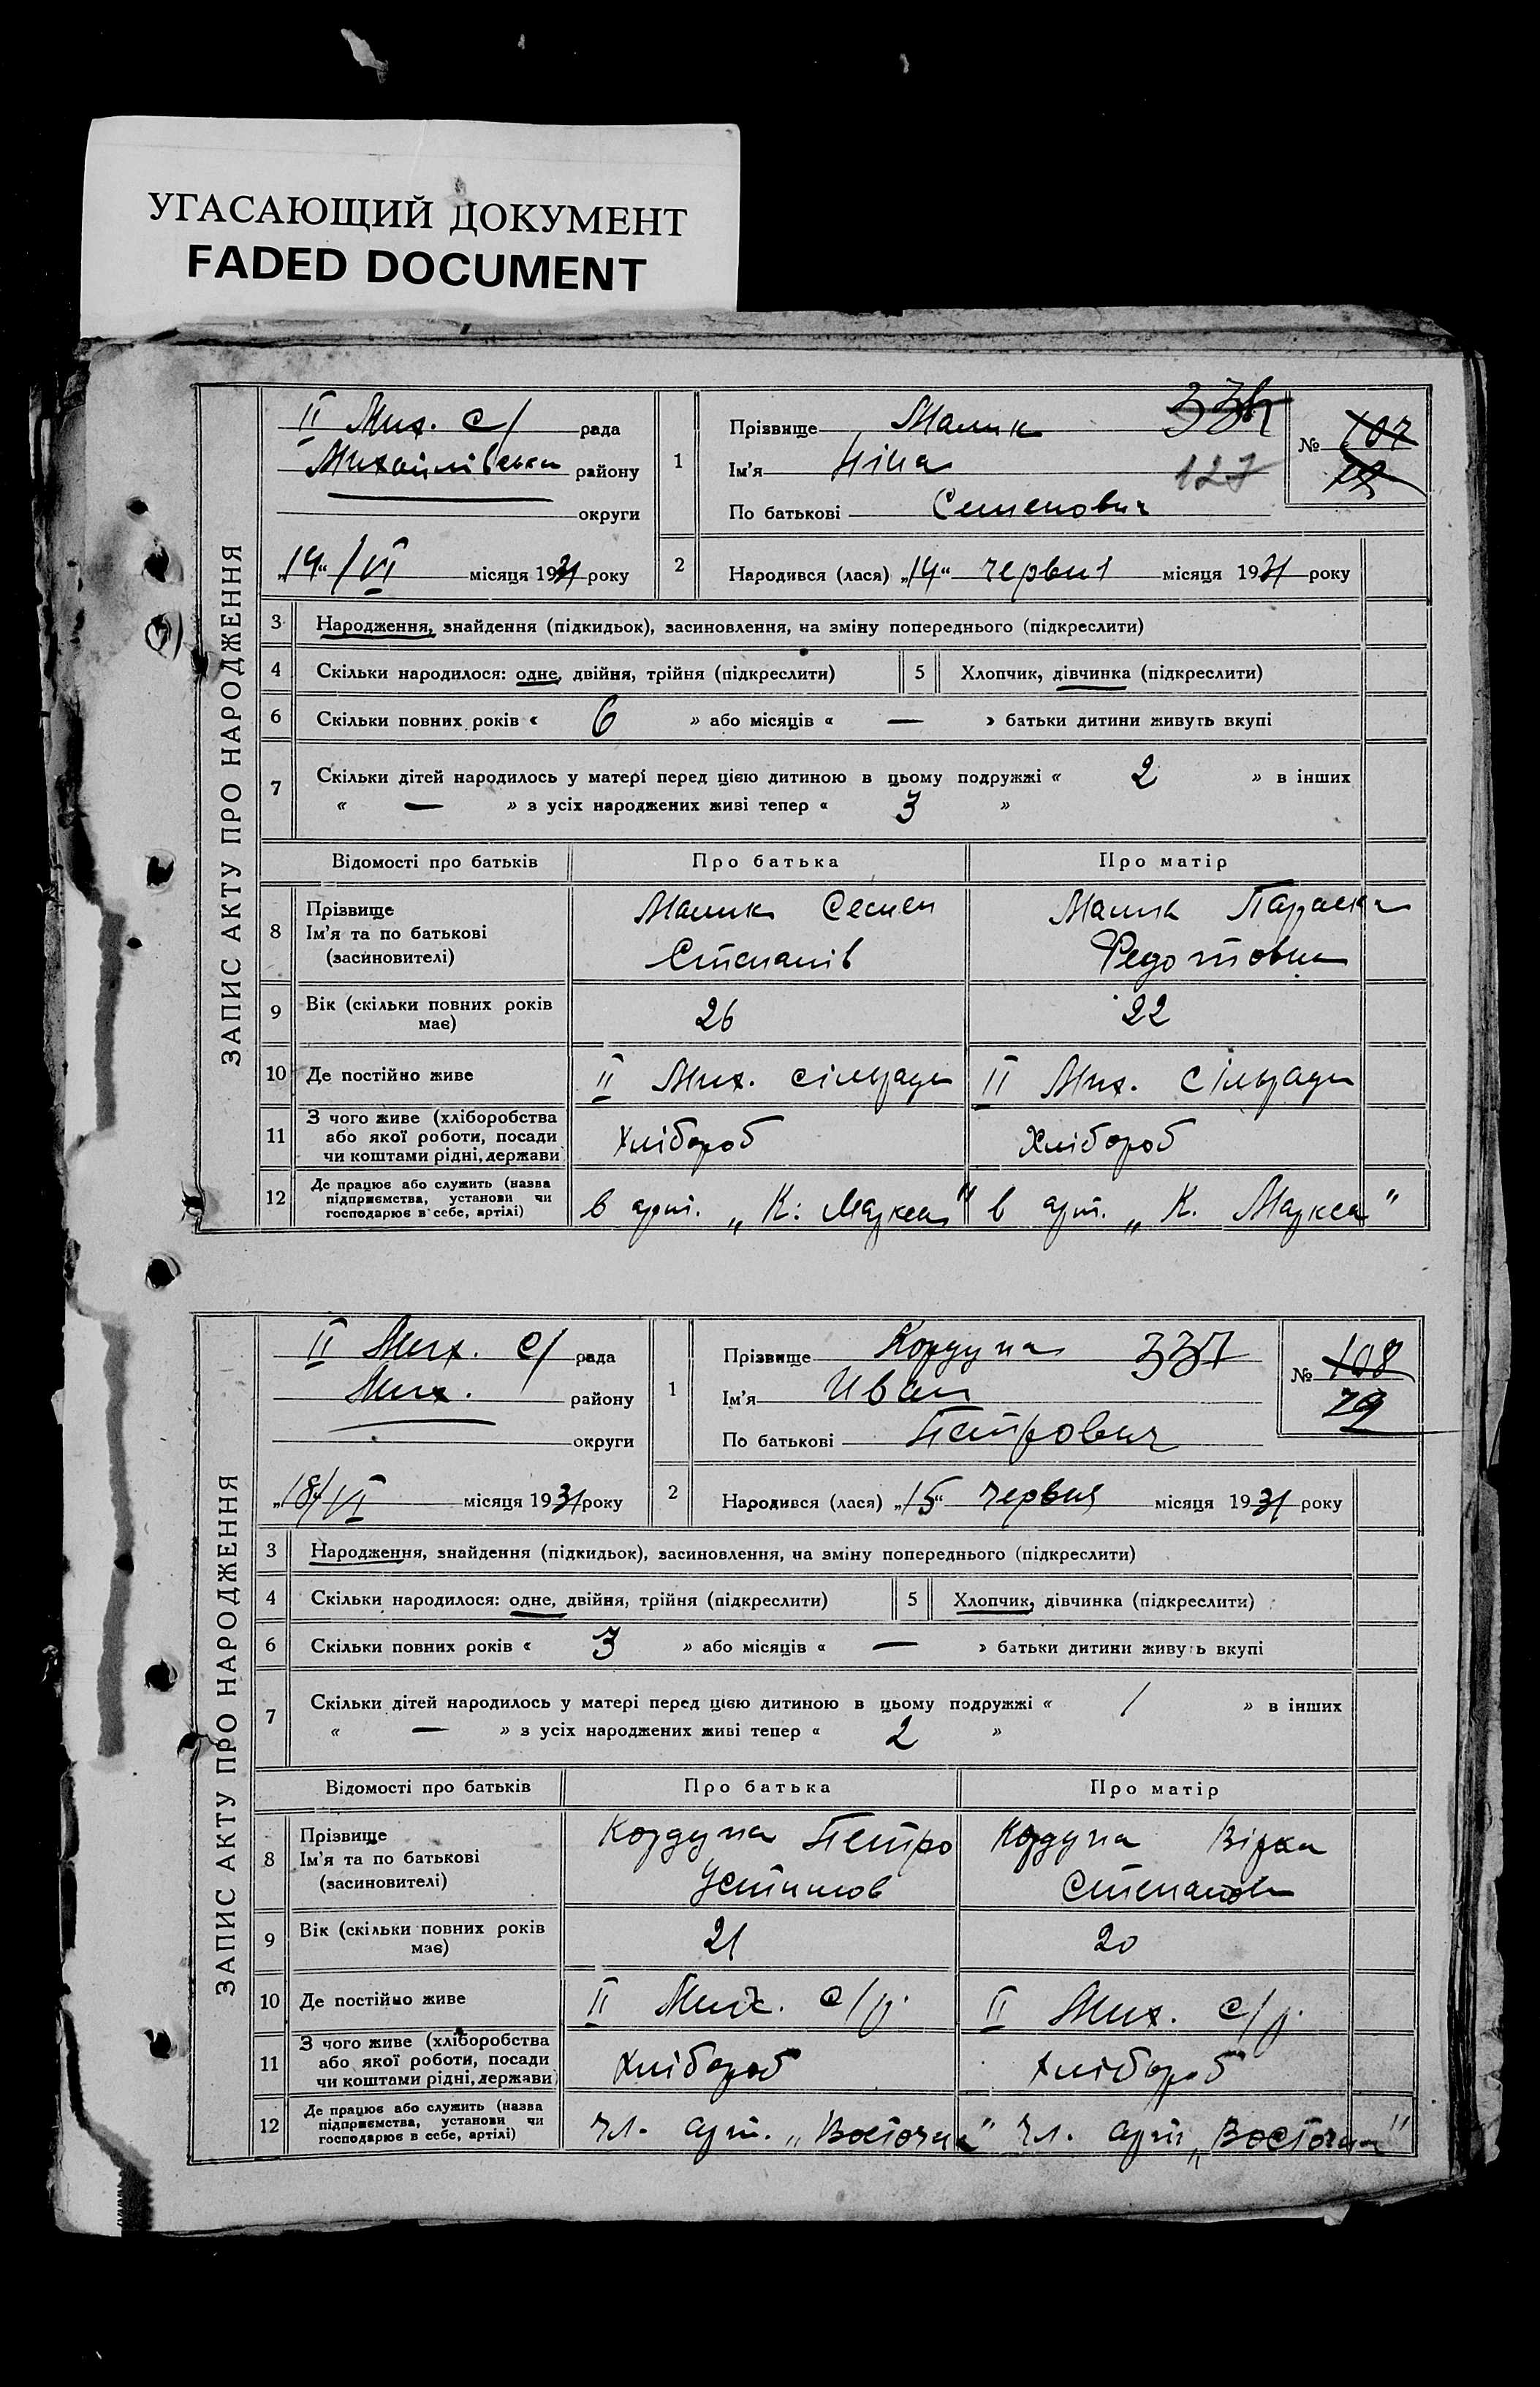 УГАСАЮЩИЙ ДОКУМЕНТ
FADED DOCUMENT
ЗАПИС АКТУ ПРО НАРОДЖЕННЯ
II Мих. с/ рада
Михайлівськ району
округи
„14“ / VI місяця 1931 року
1
Прізвище Малик
Ім’я Ніна 127
По батькові Семенович
№ 107
2
Народився (лася) „14“ червня місяця 1931 року
3 Народження, знайдення (підкидьок), засиновлення, на зміну попереднього (підкреслити)
4 Скільки народилося: одне, двійня, трійня (підкреслити) 5 Хлопчик, дівчинка (підкреслити)
6 Скільки повних років « 6 » або місяців « — » батьки дитини живуть вкупі
7 Скільки дітей народилось у матері перед цією дитиною в цьому подружжі « 2 » в інших
« — » з усіх народжених живі тепер « 3 »
Відомості про батьків Про батька Про матір
8 Прізвище
Ім’я та по батькові
(засиновителі)
Малик Семен
Степанів
Малик Параска
Федотовна
9 Вік (скільки повних років
має)
26 22
10 Де постійно живе II Мих. сільради II Мих. сільради
11 З чого живе (хліборобства
або якої роботи, посади
чи коштами рідні, держави
Хлібороб Хлібороб
12 Де працює або служить (назва
підприємства, установи чи
господарює в себе, артілі)
в арт. „К. Маркса“ в арт. „К. Маркса“
ЗАПИС АКТУ ПРО НАРОДЖЕННЯ
II Мих. с/ рада
Мих. району
округи
„18“/VI місяця 1931 року
1
Прізвище Кордупа
Ім’я Иван
По батькові Петрович
№ 108
79
2
Народився (лася) „15“ червня місяця 1931 року
3 Народження, знайдення (підкидьок), засиновлення, на зміну попереднього (підкреслити)
4 Скільки народилося: одне, двійня, трійня (підкреслити) 5 Хлопчик, дівчинка (підкреслити)
6 Скільки повних років « 3 » або місяців « — » батьки дитини живуть вкупі
7 Скільки дітей народилось у матері перед цією дитиною в цьому подружжі « 1 » в інших
« — » з усіх народжених живі тепер « 2 »
Відомості про батьків Про батька Про матір
8 Прізвище
Ім’я та по батькові
(засиновителі)
Кордупа Петро
Устимов
Кордупа Вірка
Степанов
9 Вік (скільки повних років
має)
21 20
10 Де постійно живе II Мих. с/р. II Мих. с/р.
11 З чого живе (хліборобства
або якої роботи, посади
чи коштами рідні, держави)
Хлібороб Хлібороб
12 Де працює або служить (назва
підприємства, установи чи
господарює в себе, артілі)
чл. арт. „Восточна“ чл. арт. „Восточна“